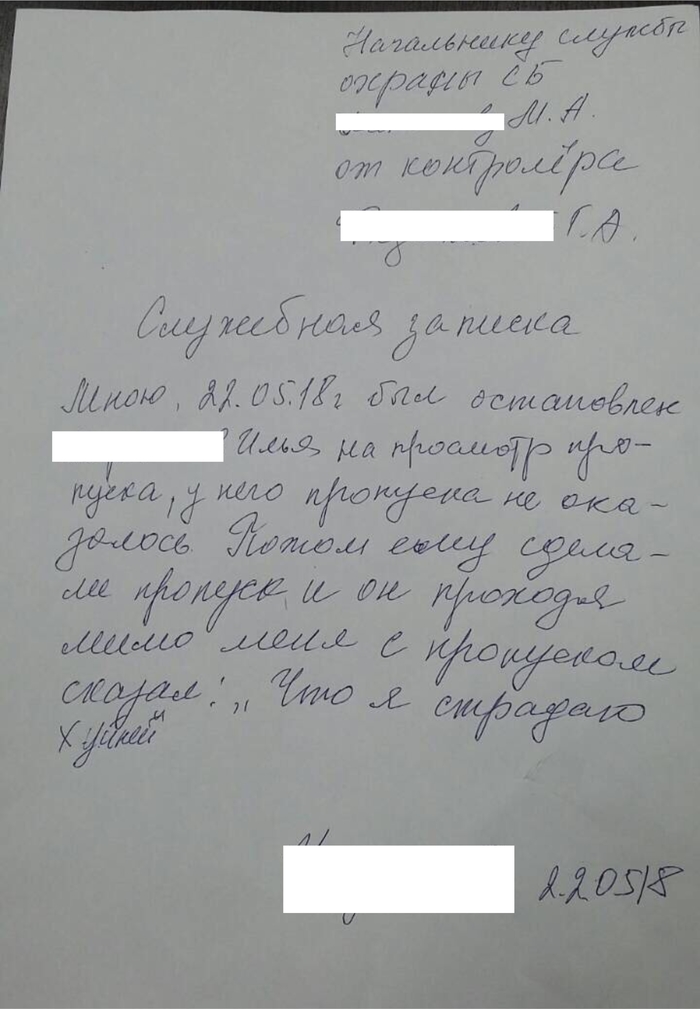 Начальнику службы
охраны СБ
М.А.
от контролёра
Г.А.
Служебная записка
Мною, 22.05.18г был остановлен
Илья на просмотр про-
пуска, у него пропуска не ока-
залось. Потом ему сдела-
ли пропуск, и он проходя
мимо меня с пропуском
сказал: „Что я страдаю
хуйней"
22.05.18